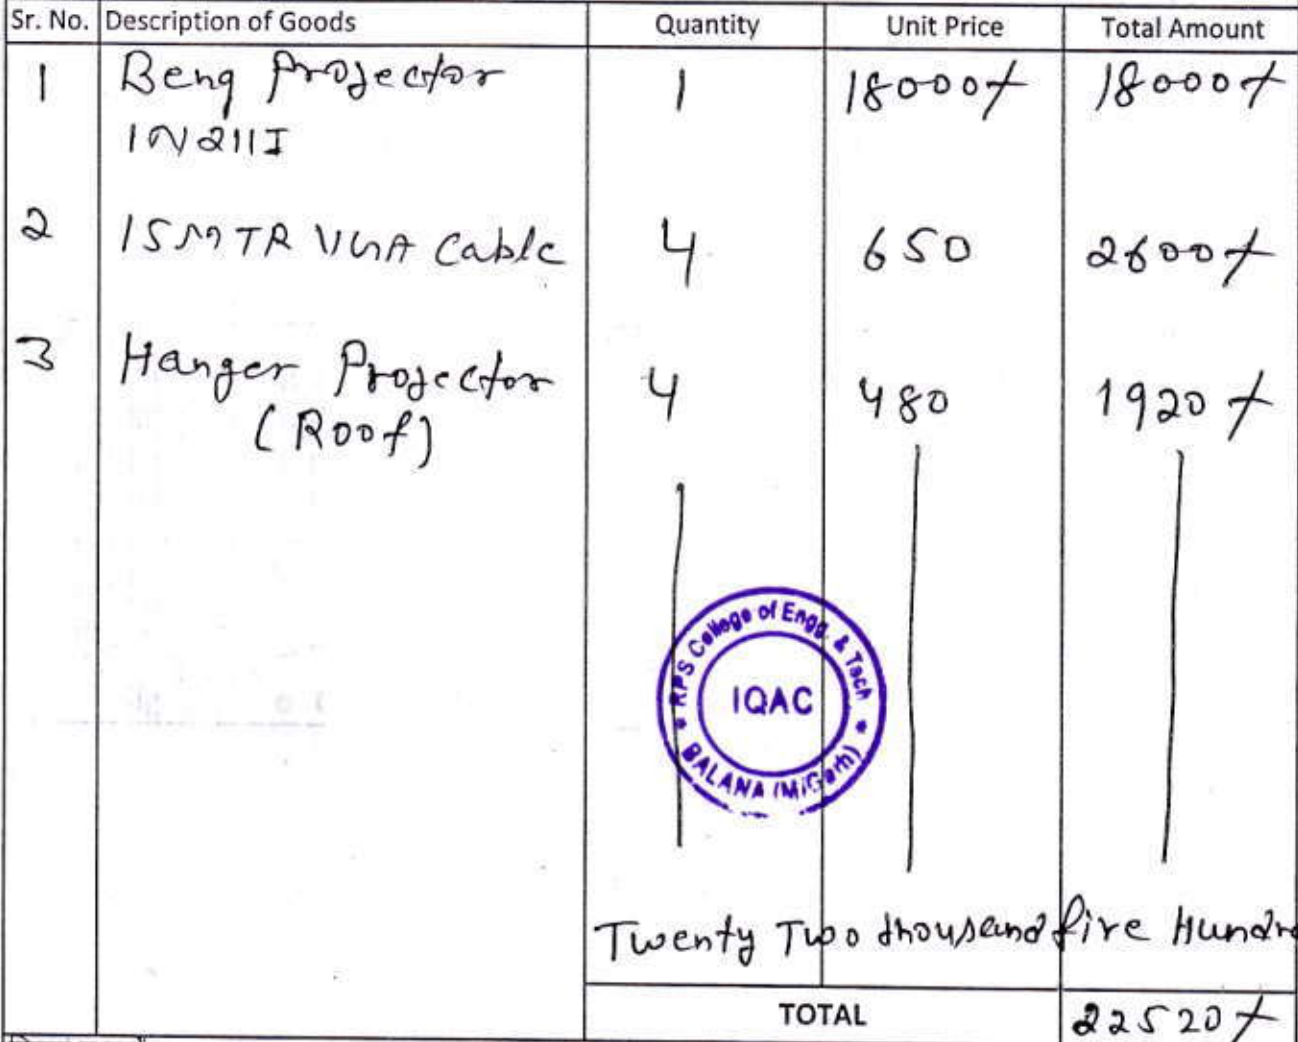 Sr. No. Description of Goods Quantity Unit Price Total Amount
1 Benq Projector 1 18000/- 18000/-
IN2111I
2 15 MTR VGA Cable 4 650 2600/-
3 Hanger Projector 4 480 1920/-
(Roof)
* RPS College of Engg. & Tech *
IQAC
BALANA (M/Garh)
Twenty Two thousand five Hundre
TOTAL 22520/-